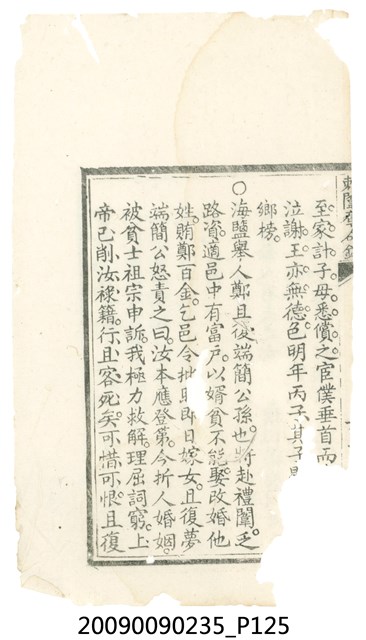 東閣登
至家計子母悉償之宦僕垂首而
泣謝王亦無德色明年丙子其子
鄉榜
○海鹽舉人鄭且復端簡公孫也將赴禮闈乏
路資適邑中有富戶以婿貧不能娶改婚他
姓賄鄭百金乞邑令批即日嫁女且復夢
端簡公怒責之曰汝本應登第今折人婚姻
被貧士祖宗申訴我極力救解理屈詞窮上
帝已削汝祿籍行且客死矣可惜可恨且復
20090090235_P125